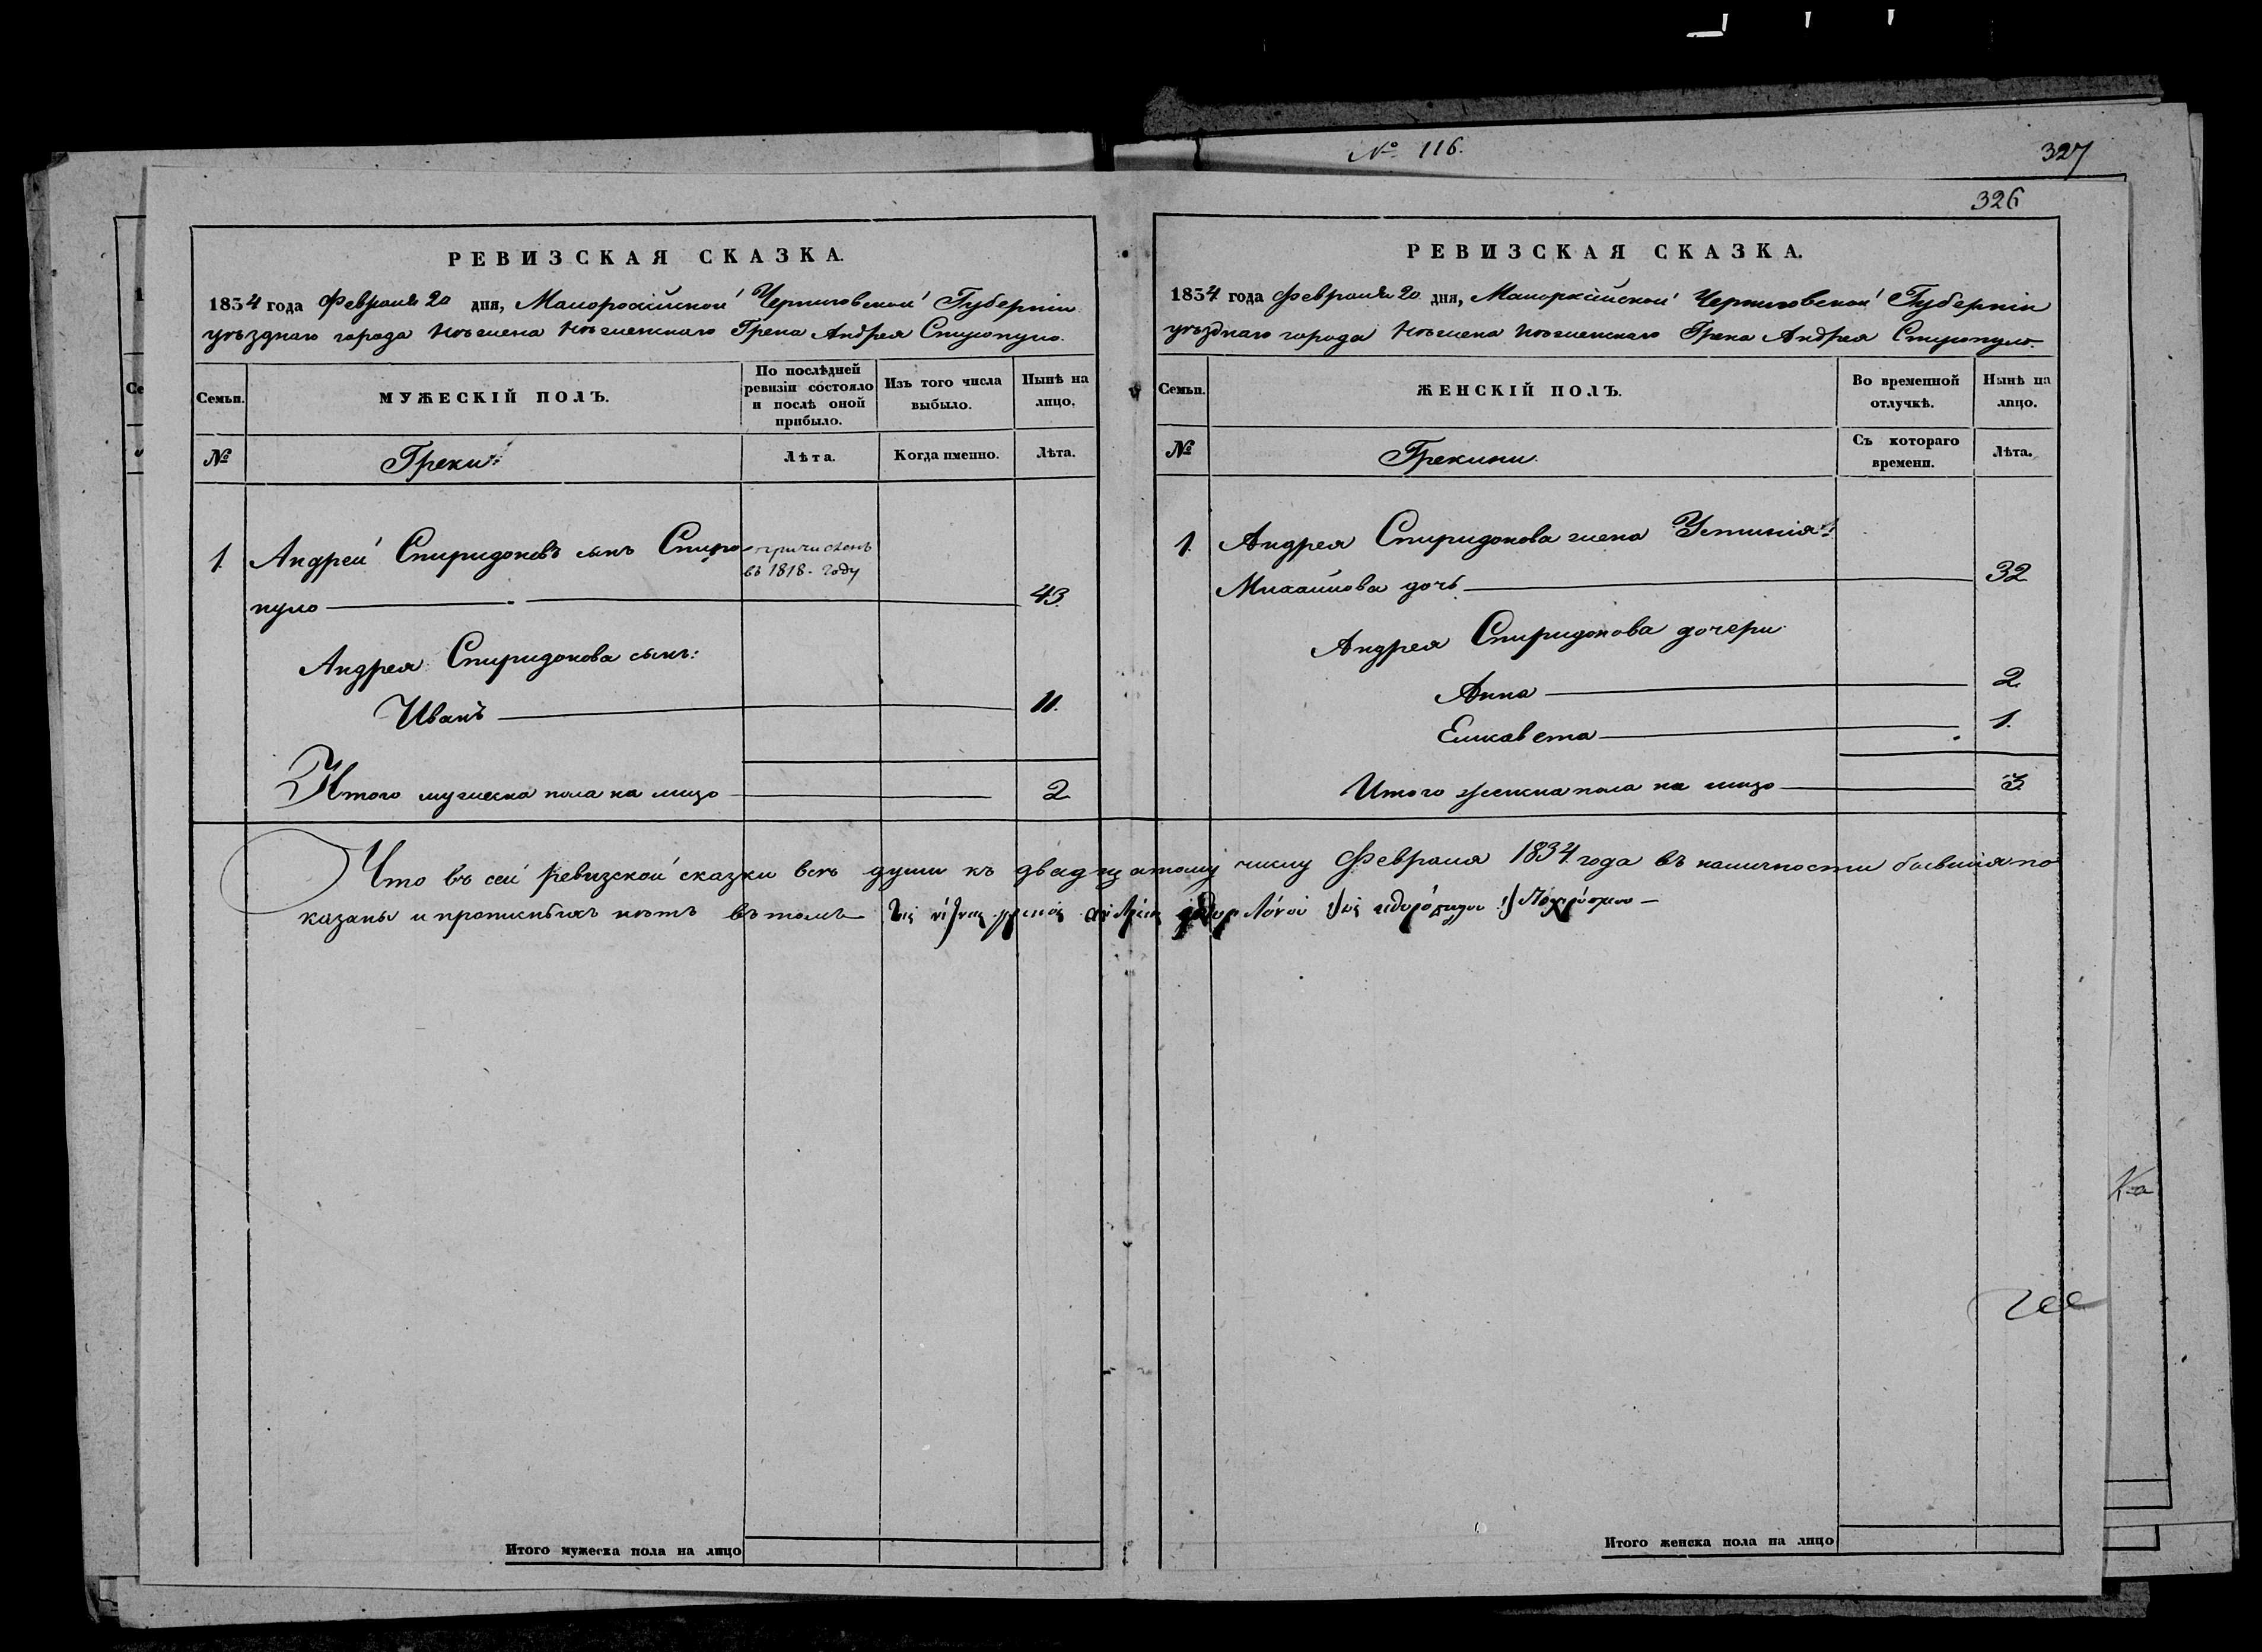 № 116.
327
326
РЕВИЗСКАЯ СКАЗКА.
1834 года Февраля 20 дня, Малороссійской Черниговской Губерніи
уѣзднаго города Нѣжина Нѣжинскаго Грека Андрея Спиропуло.
Семьи.
МУЖЕСКІЙ ПОЛЪ.
По послѣдней ревизіи состояло и послѣ оной прибыло.
Изъ того числа выбыло.
Нынѣ на лицо.
№
Греки:
Лѣта.
Когда именно.
Лѣта.
1. Андрей Спиридоновъ сынъ Спиро- причисленъ
въ 1818. году
пуло 43.
Андрея Спиридонова сынъ:
Иванъ 11.
Итого мужеска пола на лицо 2
РЕВИЗСКАЯ СКАЗКА.
1834 года Февраля 20 дня, Малороссійской Черниговской Губерніи
уѣзднаго города Нѣжина Нѣжинскаго Грека Андрея Спиропуло.
Семьи.
ЖЕНСКІЙ ПОЛЪ.
Во временной отлучкѣ.
Нынѣ на лицо.
№
Грекини
Съ котораго времени.
Лѣта.
1. Андрея Спиридонова жена Устинія
Михайлова дочь 32
Андрея Спиридонова дочери
Анна 2.
Елисавета 1.
Итого женска пола на лицо 3
Что въ сей ревизской сказки всѣ души къ двадцатому числу Февраля 1834 года въ наличности бывшія по
казаны и прописныхъ нѣтъ въ томъ
Итого мужеска пола на лицо
Итого женска пола на лицо